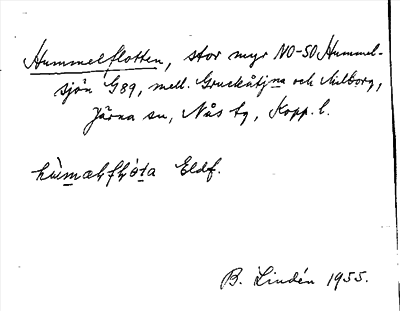 Hummelflotten, stor myr NO-SO Hummel-
sjön G89, mell. Gruckåtjna och Milborg,
Järna sn, Nås tg, Kopp. l.
Eldf.
B. Lindén 1955.